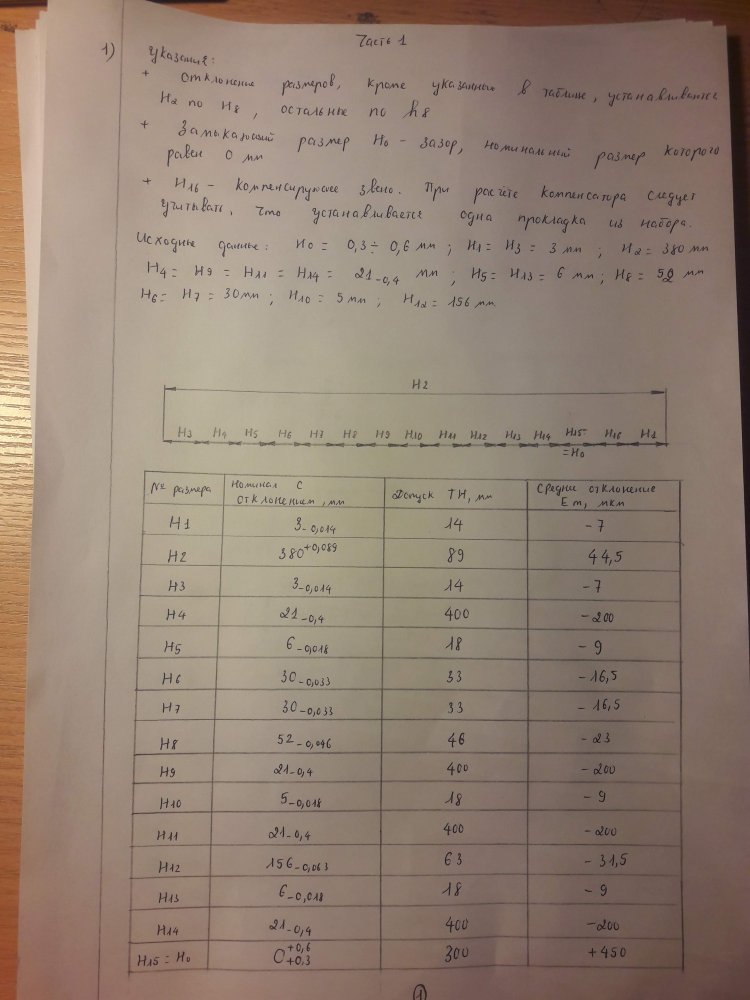 Часть 1
1)
Указания:
+ Отклонение размеров, кроме указанных в таблице, устанавливаются
H2 по H8, остальные по h8
+ Замыкающий размер H0 - зазор, номинальный размер которого
равен 0 мм
+ H16 - компенсирующее звено. При расчёте компенсатора следует
учитывать, что устанавливается одна прокладка из набора.
Исходные данные: H0 = 0,3 ÷ 0,6 мм; H1 = H3 = 3 мм; H2 = 380 мм
H4 = H9 = H11 = H14 = 21-0,4 мм; H5 = H13 = 6 мм; H8 = 52 мм
H6 = H7 = 30мм; H10 = 5 мм; H12 = 156 мм
H2
H3 H4 H5 H6 H7 H8 H9 H10 H11 H12 H13 H14 H15= H16 H1
=H0
№ размера Номинал с отклонением, мм Допуск TH, мм Среднее отклонение Em, мкм
H1 3-0,014 14 -7
H2 380+0,089 89 44,5
H3 3-0,014 14 -7
H4 21-0,4 400 -200
H5 6-0,018 18 -9
H6 30-0,033 33 -16,5
H7 30-0,033 33 -16,5
H8 52-0,046 46 -23
H9 21-0,4 400 -200
H10 5-0,018 18 -9
H11 21-0,4 400 -200
H12 156-0,063 63 -31,5
H13 6-0,018 18 -9
H14 21-0,4 400 -200
H15 = H0 0+0,6 +0,3 300 +450
1